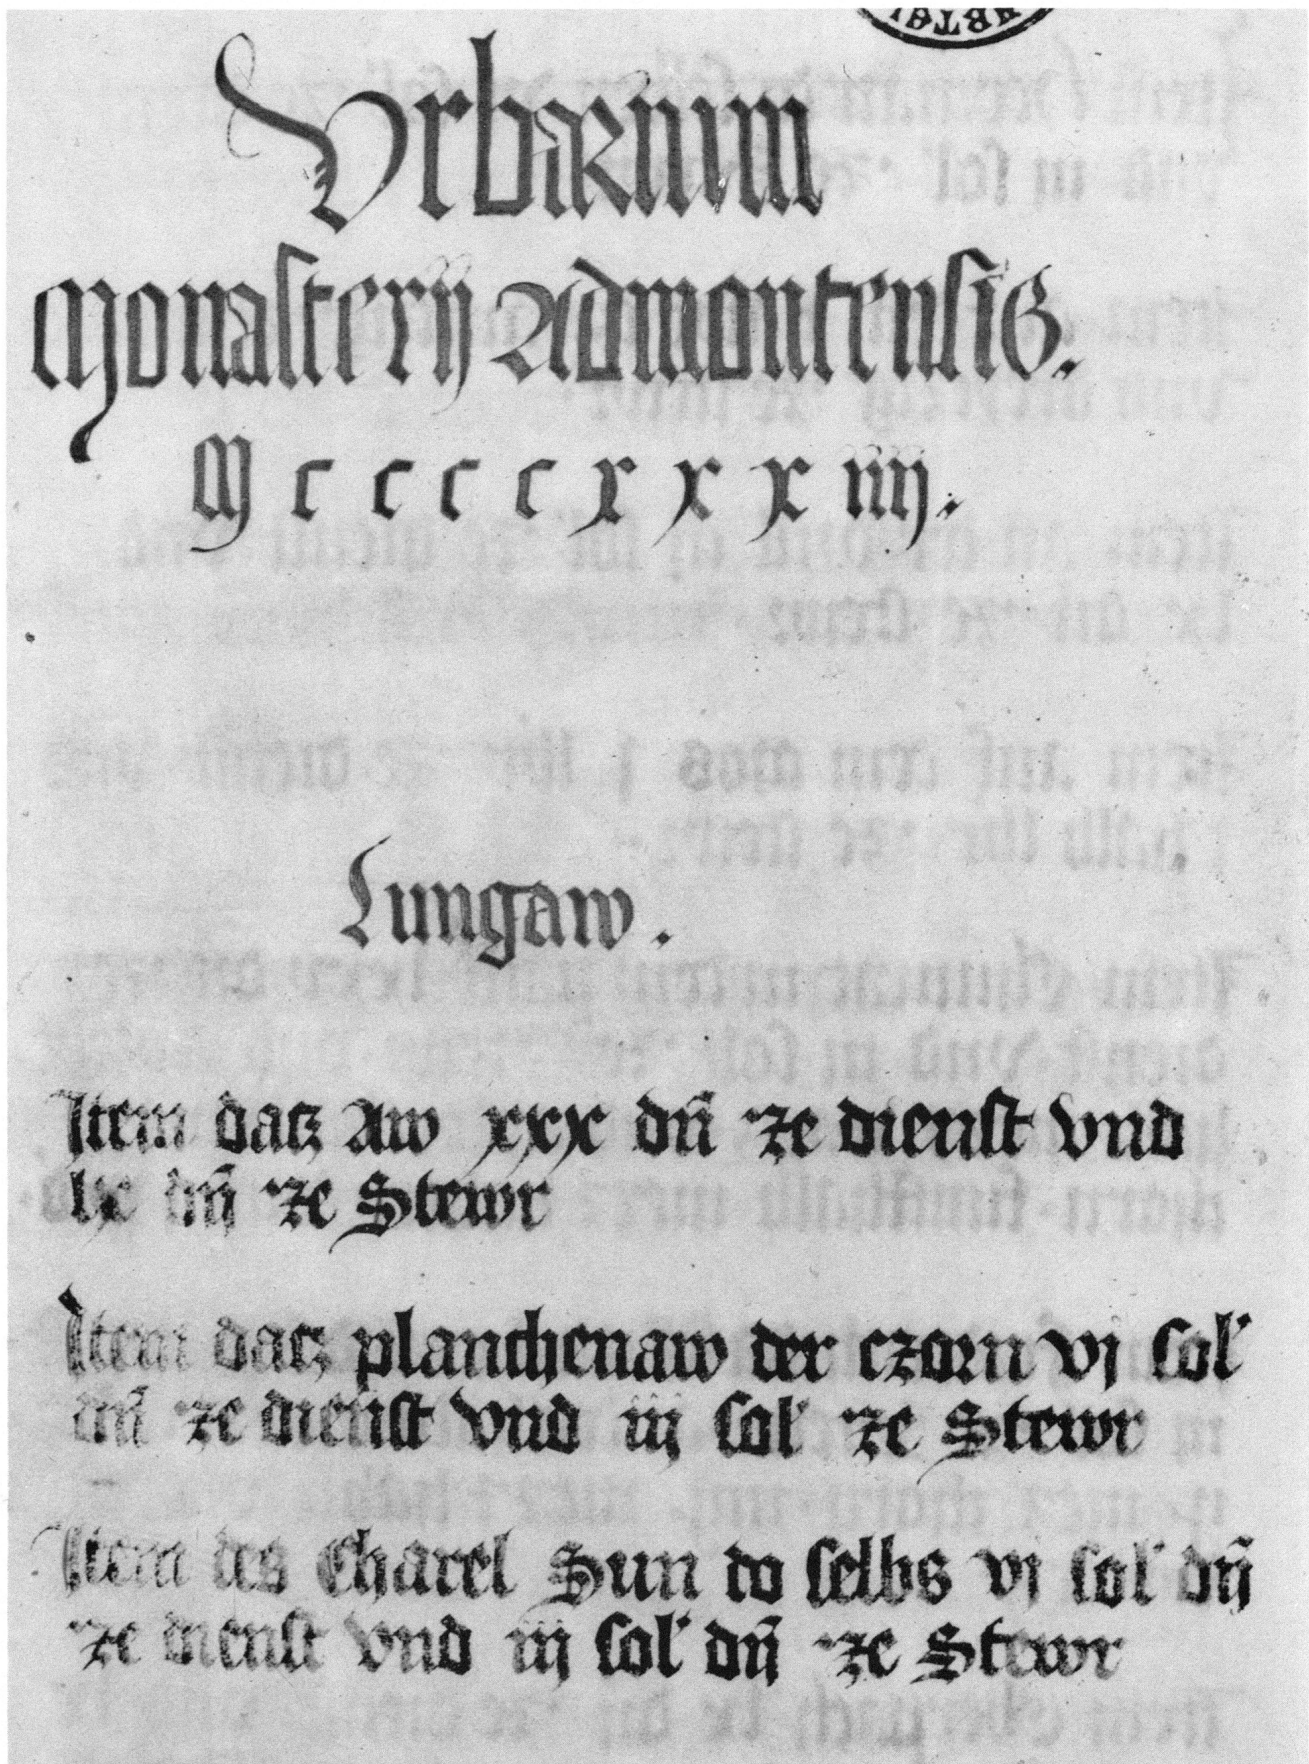 Vrbarium
Monasterij Admontensis.
M c c c c x x x iiij.
Lungaw.
Item datz Aw xxx dn̄ ze dienst vnd
lx dn̄ ze Stewr
Item datz planchenaw der czorn vj sol
dn̄ ze dienst vnd iij sol ze Stewr
Item des Charel Sun do selbs vj sol dn̄
ze dienst vnd iij sol dn̄ ze Stewr